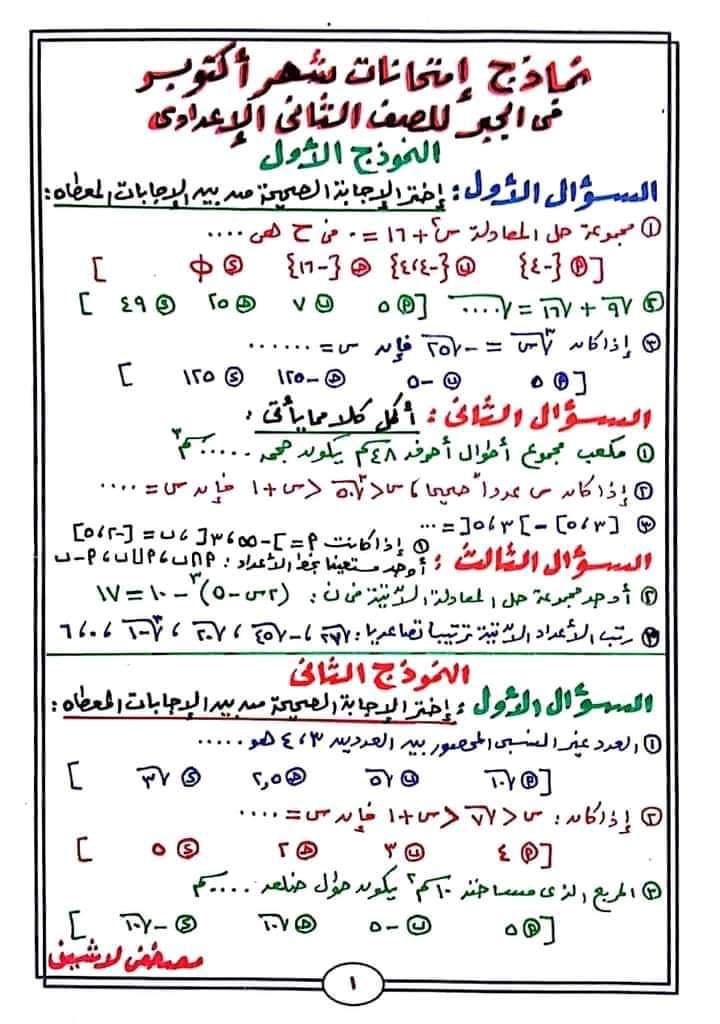 نماذج إمتحانات شهر أكتوبر
فى الجبر للصف الثانى الإعدادى
النموذج الأول
السؤال الأول: إختر الإجابة الصحيحة من بين الإجابات المعطاه:
① مجموعة حل المعادلة س² + ١٦ = ٠ فى ح هى ....
[ Ⓟ {-٤} ⓤ {-٤،٤} ⓗ {-١٦} ⓢ φ ]
② √٩ + √١٦ = √....
[ Ⓟ ٥ ⓤ ٧ ⓗ ٢٥ ⓢ ٤٩ ]
③ إذا كان ∛س = -√٢٥ فإن س = ......
[ Ⓟ ٥ ⓤ -٥ ⓗ -١٢٥ ⓢ ١٢٥ ]
السؤال الثانى: أكمل كلا مما يأتى:
① مكعب مجموع أطوال أحرفه ٤٨ كم يكون حجمه ..... كم³
② إذا كان س عدداً صحيحا، س < ∛٥٠ < س + ١ فإن س = ....
③ [٥،٣] - ]٥،٣[ = ...
السؤال الثالث: ① إذا كانت P = ]-∞،٣[ ، ب = [-٥،٢]
أوجد مستعينا بخط الأعداد: P∩ب ، P∪ب ، P-ب
② أوجد مجموعة حل المعادلة الآتية فى ن: (٢س-٥)³ - ١٠ = ١٧
③ رتب الأعداد الآتية ترتيبا تصاعديا: √٢٧ ، -√٤٥ ، √٢٠ ، ∛-١ ، ٠ ، ٦
النموذج الثانى
السؤال الأول: إختر الإجابة الصحيحة من بين الإجابات المعطاه:
① العدد غير النسبى المحصور بين العددين ٣،٤ هو .....
[ Ⓟ √١٠ ⓤ √٥ ⓗ ٢,٥ ⓢ √٣ ]
② إذا كان: س < √٧ < س + ١ فإن س = ....
[ Ⓟ ٤ ⓤ ٣ ⓗ ٢ ⓢ ٥ ]
③ المربع الذى مساحته ١٠ كم² يكون طول ضلعه ..... كم
[ Ⓟ ٥ ⓤ -٥ ⓗ √١٠ ⓢ -√١٠ ]
مصطفى لاشين
١